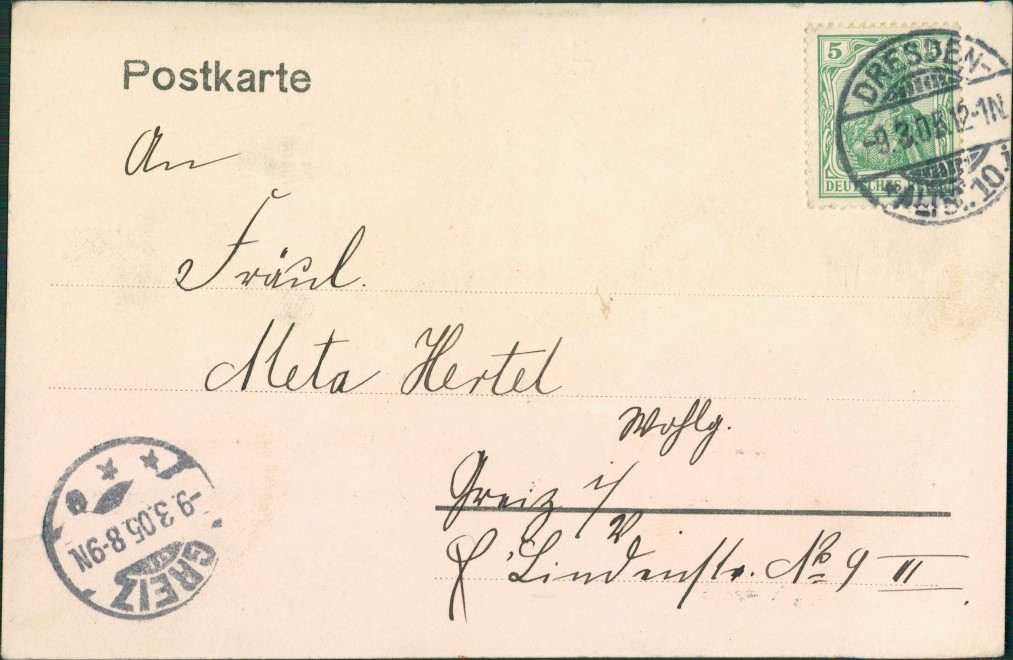 Postkarte
5
DEUTSCHES
DRESDEN-
-9.3.05.12-1N
ALTST. 10.
An
Fräul.
Meta Hertel
Wohlg.
Greiz i/V
Lindenstr. No 9 III
-9.3.05.8-9N
GREIZ